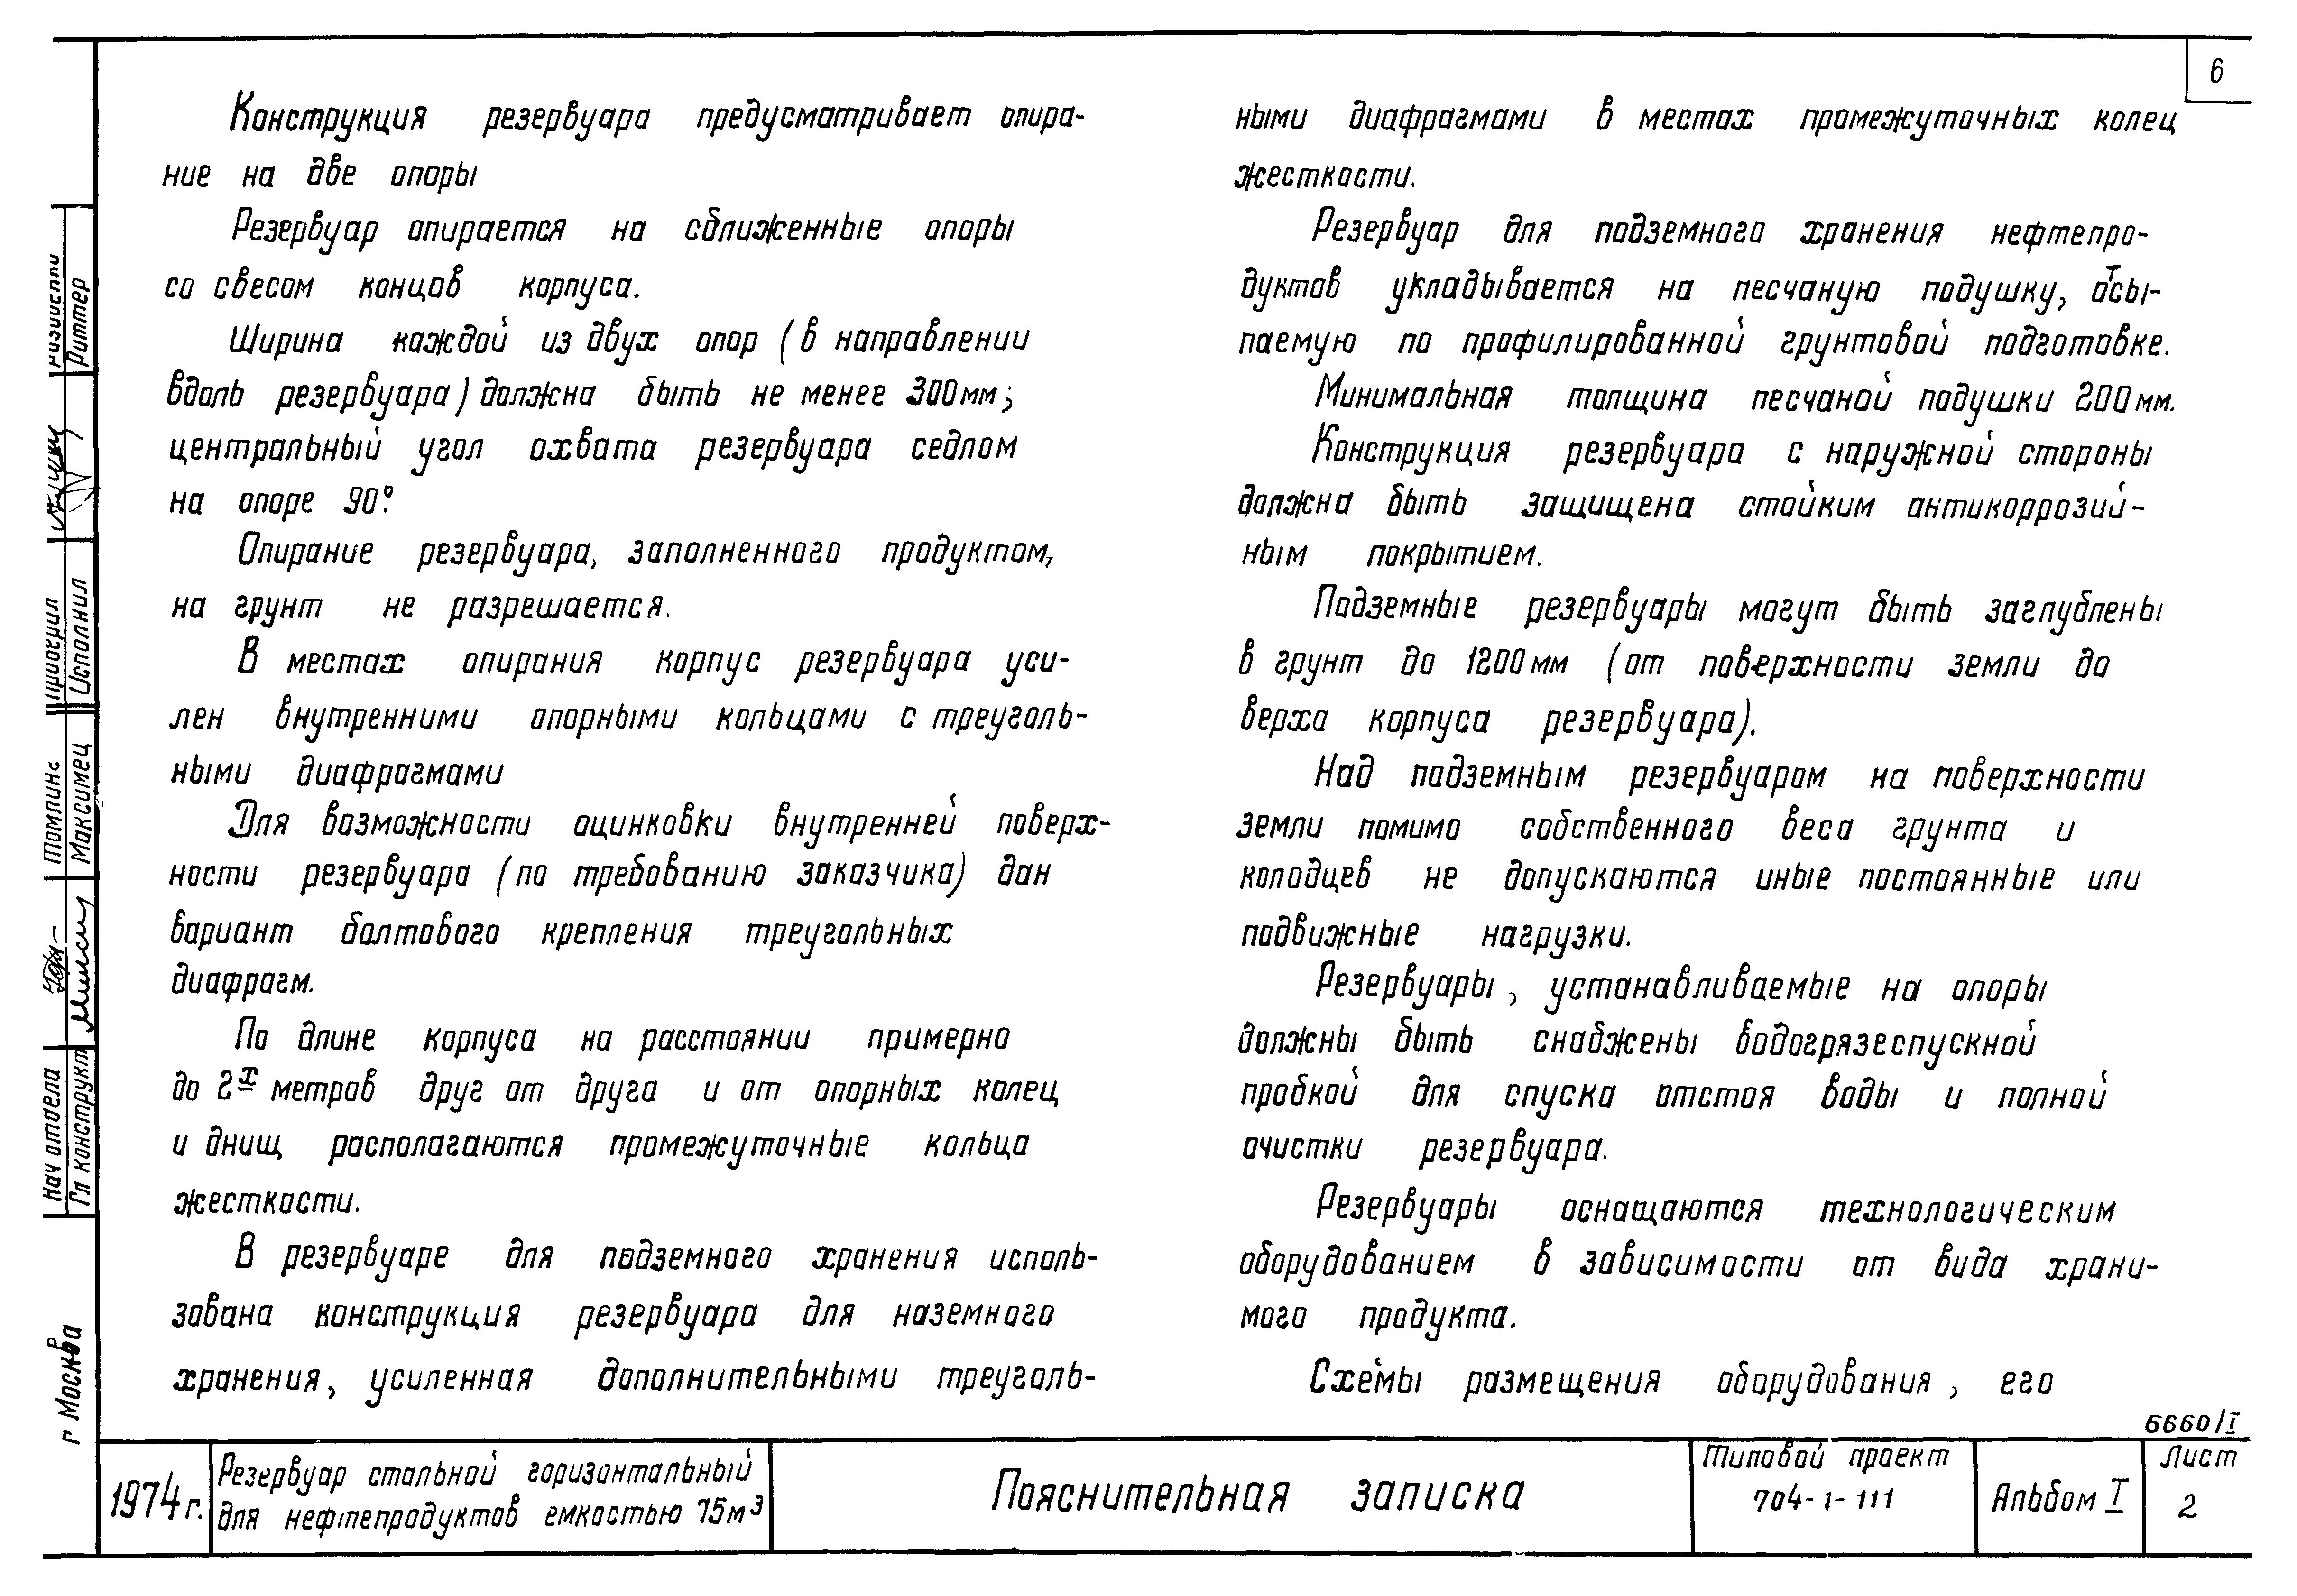 6
Конструкция резервуара предусматривает опира-
ние на две опоры
Резервуар опирается на сближенные опоры
со свесом концов корпуса.
Ширина каждой из двух опор (в направлении
вдоль резервуара) должна быть не менее 300мм;
центральный угол охвата резервуара седлом
на опоре 90°.
Опирание резервуара, заполненного продуктом,
на грунт не разрешается.
В местах опирания корпус резервуара уси-
лен внутренними опорными кольцами с треуголь-
ными диафрагмами
Для возможности оцинковки внутренней поверх-
ности резервуара (по требованию заказчика) дан
вариант болтового крепления треугольных
диафрагм.
По длине корпуса на расстоянии примерно
до 2х метров друг от друга и от опорных колец
и днищ располагаются промежуточные кольца
жесткости.
В резервуаре для подземного хранения исполь-
зована конструкция резервуара для наземного
хранения, усиленная дополнительными треуголь-
ными диафрагмами в местах промежуточных колец
жесткости.
Резервуар для подземного хранения нефтепро-
дуктов укладывается на песчаную подушку, отсы-
паемую по профилированной грунтовой подготовке.
Минимальная толщина песчаной подушки 200мм.
Конструкция резервуара с наружной стороны
должна быть защищена стойким антикоррозий-
ным покрытием.
Подземные резервуары могут быть заглублены
в грунт до 1200мм (от поверхности земли до
верха корпуса резервуара).
Над подземным резервуаром на поверхности
земли помимо собственного веса грунта и
колодцев не допускаются иные постоянные или
подвижные нагрузки.
Резервуары, устанавливаемые на опоры
должны быть снабжены водогрязеспускной
пробкой для спуска отстоя воды и полной
очистки резервуара.
Резервуары оснащаются технологическим
оборудованием в зависимости от вида храни-
мого продукта.
Схемы размещения оборудования, его
6660/I
1974г.
Резервуар стальной горизонтальный
для нефтепродуктов емкостью 75м³
Пояснительная записка
Типовой проект
704-1-111
Альбом I
Лист
2
г Москва
Нач отдела
Гл конструкт
Максимец
Проверил
Исполнил
Риттер